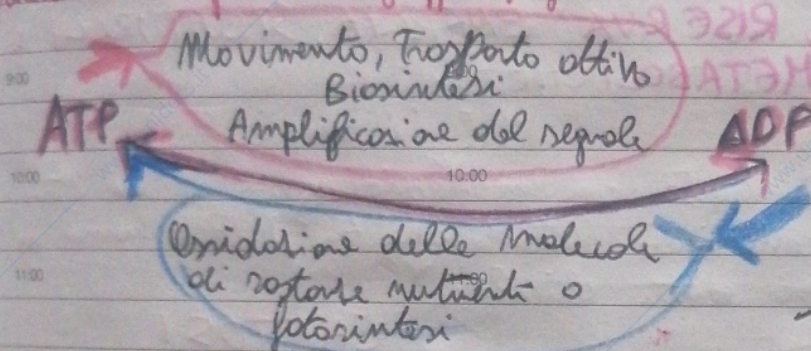 9:00
Movimento, Trasporto attivo
Biosintesi
ATP Amplificazione del segnale ADP
10:00 10:00
Ossidazione delle molecole
11:00 di sostanze nutrienti o
fotosintesi